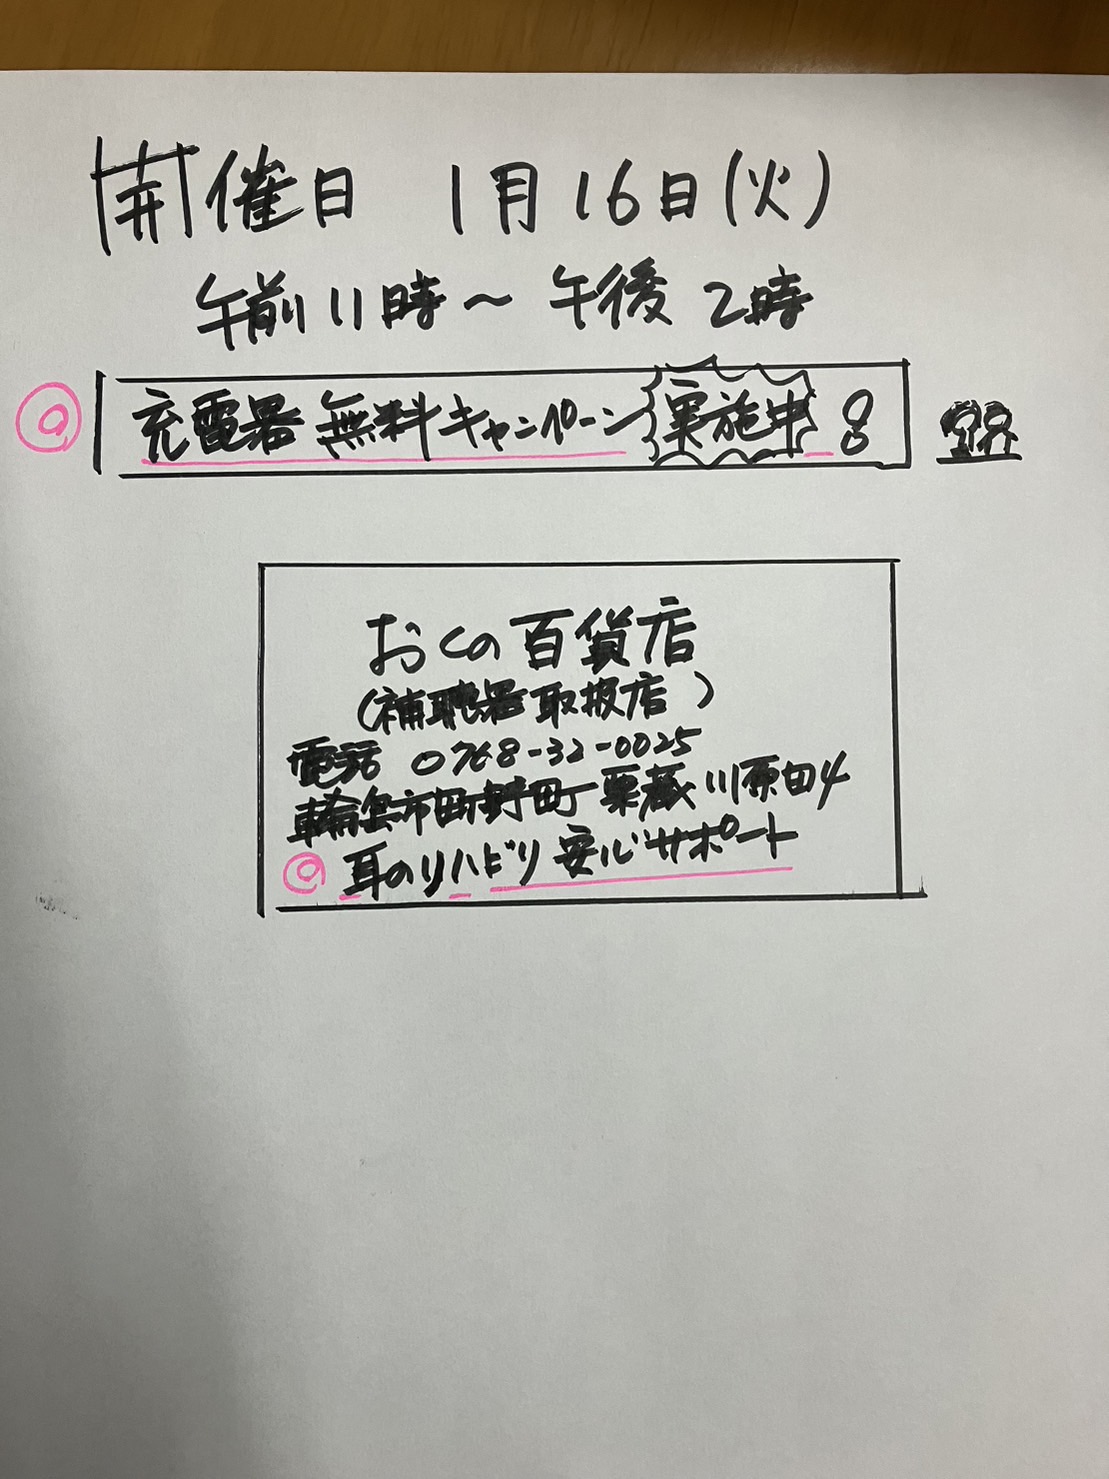 開催日 1月16日(火)
午前11時～午後2時
充電器無料キャンペーン実施中!
おくの百貨店
(補聴器取扱店)
電話 0768-32-0025
輪島市町野町粟蔵川原田4
耳のリハビリ安心サポート